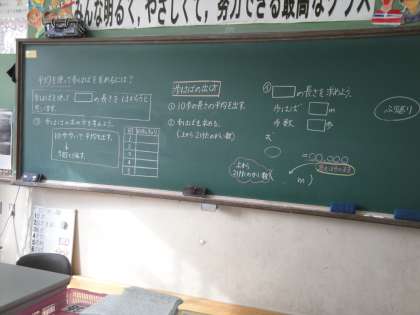 みんな明るく,やさしくて,努力できる最高なクラス
平均を使って歩はばを求めるには?
歩はばを使って□の長さをはかろうと思います。
① 歩はばの求め方を考えよう。
10歩歩いて平均を出す。
歩はばの出し方
① 10歩の長さの平均を出す。
② 歩はばを求める。
(上から2けたのがい数)
④ □の長さを求めよう。
歩はば □ m
歩数 □ 歩
式
ふり返り
上から
2けたのがい数
m